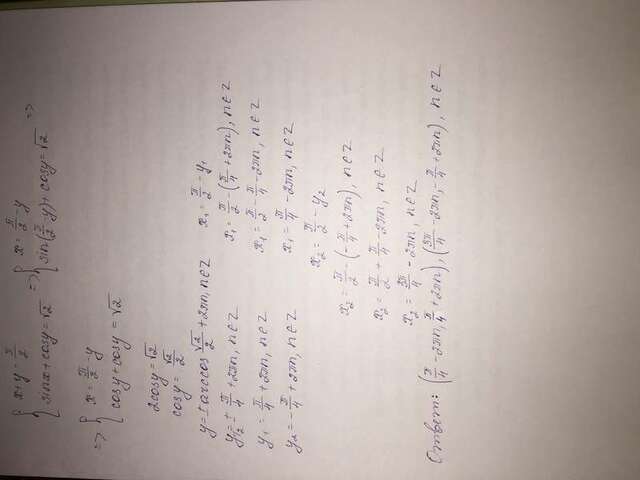 { x+y = π/2 => { x = π/2 - y =>
{ sinx + cosy = √2 { sin(π/2 - y) + cosy = √2
=> { x = π/2 - y
{ cosy + cosy = √2
2cosy = √2
cosy = √2/2
y = ± arccos √2/2 + 2πn, n∈Z x₁ = π/2 - y₁
y₁,₂ = ± π/4 + 2πn, n∈Z x₁ = π/2 - (π/4 + 2πn), n∈Z
y₁ = π/4 + 2πn, n∈Z x₁ = π/2 - π/4 - 2πn, n∈Z
y₂ = - π/4 + 2πn, n∈Z x₁ = π/4 - 2πn, n∈Z
x₂ = π/2 - y₂
x₂ = π/2 - (- π/4 + 2πn), n∈Z
x₂ = π/2 + π/4 - 2πn, n∈Z
x₂ = 3π/4 - 2πn, n∈Z
Ответ: (π/4 - 2πn, π/4 + 2πn), (3π/4 - 2πn, - π/4 + 2πn), n∈Z